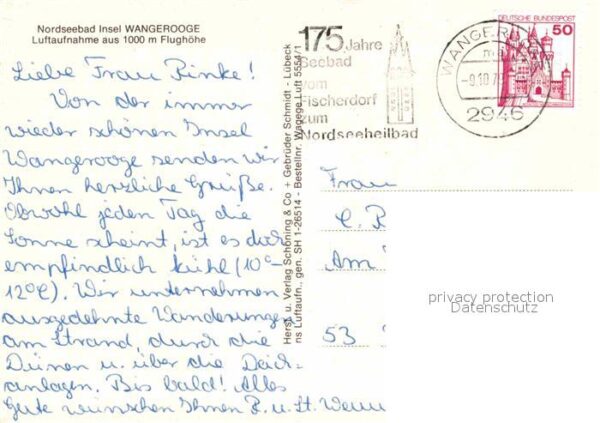 Nordseebad Insel WANGEROOGE
Luftaufnahme aus 1000 m Flughöhe
Liebe Frau Rinke!
Von der immer
wieder schönen Insel
Wangerooge senden wir
Ihnen herzliche Grüße.
Obwohl jeden Tag die
Sonne scheint, ist es doch
empfindlich kühl (10°-
12°C). Wir unternehmen
ausgedehnte Wanderungen
am Strand, durch die
Dünen u. über die Deich-
anlagen. Bis bald! Alles
Gute wünschen Ihnen R. u. St.
Herst. u. Verlag Schöning & Co + Gebrüder Schmidt - Lübeck
ns Luftaufn., gen. SH 1-26514 - Bestellnr. Wagege Luft 5554/1
175 Jahre
Seebad
vom
Fischerdorf
zum
Nordseeheilbad
WANGEROOGE
2946
DEUTSCHE BUNDESPOST
50
Frau
C. R
Am
53
privacy protection
Datenschutz